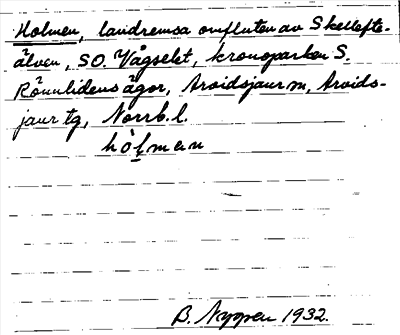 Holmen, landremsa omfluten av Skellefte-
älven, SO. Vågselet, kronoparken S.
Rönnlidens ägor, Arvidsjaur sn, Arvids-
jaur tg, Norrb. l.
hólmen
B. Nygren 1932.